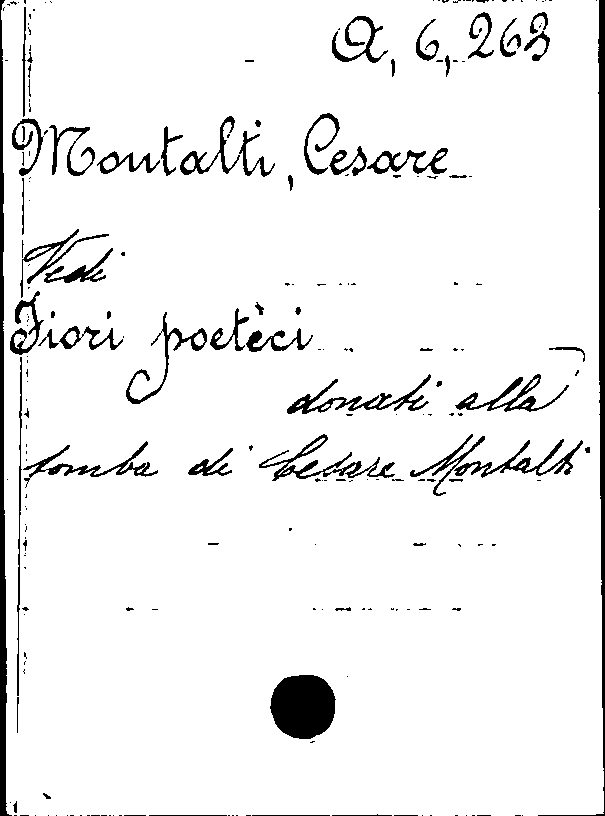 A, 6, 263
Montalti, Cesare
Vedi
Fiori poetici
donati alla
tomba di Cesare Montalti